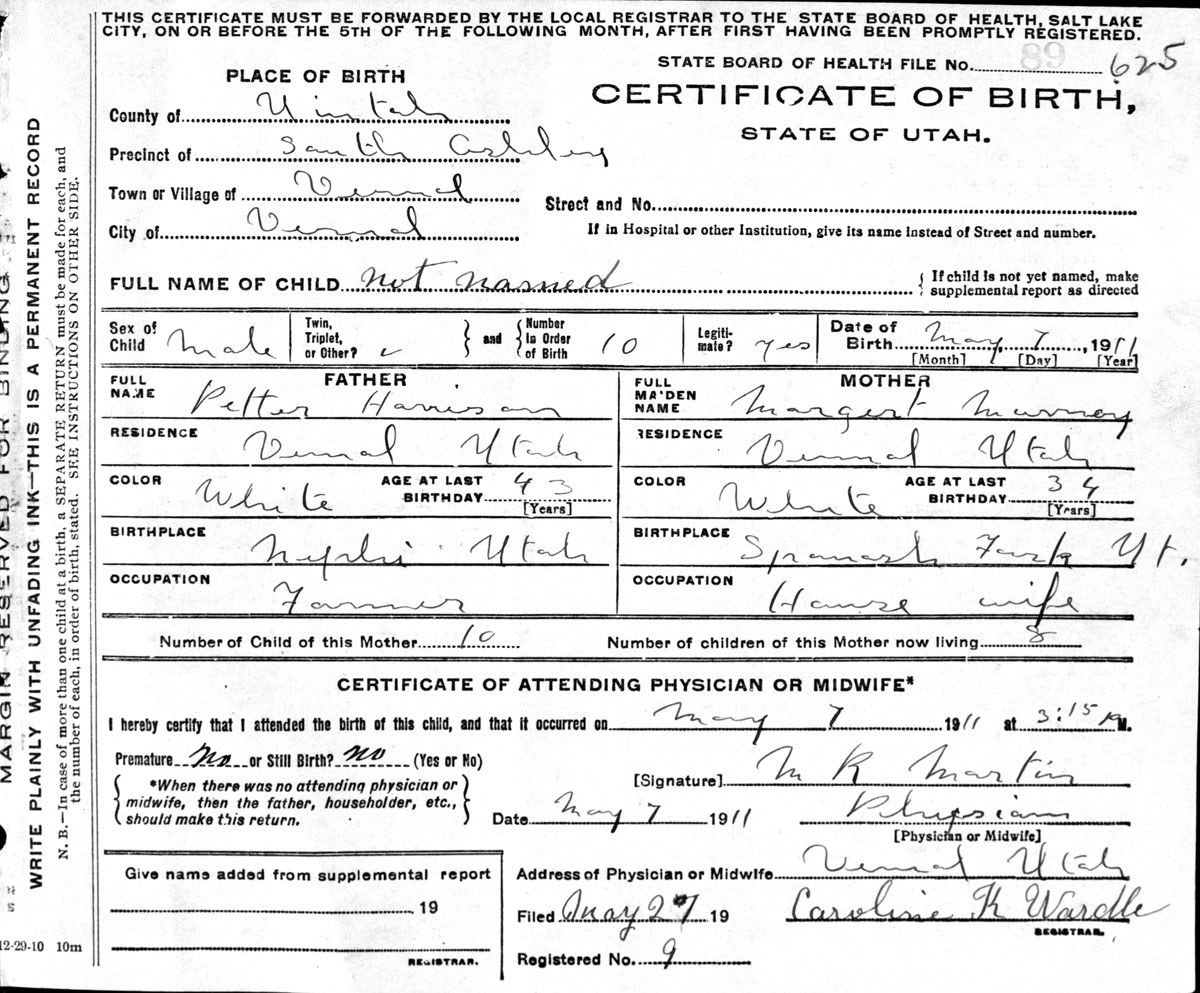 THIS CERTIFICATE MUST BE FORWARDED BY THE LOCAL REGISTRAR TO THE STATE BOARD OF HEALTH, SALT LAKE
CITY, ON OR BEFORE THE 5TH OF THE FOLLOWING MONTH, AFTER FIRST HAVING BEEN PROMPTLY REGISTERED.
STATE BOARD OF HEALTH FILE No. 89 625
PLACE OF BIRTH
CERTIFICATE OF BIRTH,
STATE OF UTAH.
County of Uintah
Precinct of South Ashley
Town or Village of Vernal
Street and No.
City of Vernal
If in Hospital or other Institution, give its name instead of Street and number.
FULL NAME OF CHILD not named
{ If child is not yet named, make
supplemental report as directed
Sex of Child Male
Twin, Triplet, or Other?
and
Number In Order of Birth 10
Legiti-mate? yes
Date of Birth May 7, 1911
[Month] [Day] [Year]
FATHER
FULL NAME Petter Harrison
RESIDENCE Vernal Utah
COLOR White
AGE AT LAST BIRTHDAY 43
[Years]
BIRTHPLACE Nephi Utah
OCCUPATION Farmer
MOTHER
FULL MAIDEN NAME Margert Murrey
RESIDENCE Vernal Utah
COLOR White
AGE AT LAST BIRTHDAY 34
[Years]
BIRTHPLACE Spanash Fark Ut.
OCCUPATION House wife
Number of Child of this Mother 10
Number of children of this Mother now living 8
CERTIFICATE OF ATTENDING PHYSICIAN OR MIDWIFE*
I hereby certify that I attended the birth of this child, and that it occurred on May 7 1911 at 3:15 M.
Premature No or Still Birth? no (Yes or No)
*When there was no attending physician or
midwife, then the father, householder, etc.,
should make this return.
[Signature] M K Martin
Date May 7 1911
Physian
[Physician or Midwife]
Give name added from supplemental report
19
REGISTRAR.
Address of Physician or Midwife Vernal Utah
Filed May 27 19 Caroline K Wardle
REGISTRAR.
Registered No. 9
12-29-10 10m
MARGIN RESERVED FOR BINDING
WRITE PLAINLY WITH UNFADING INK—THIS IS A PERMANENT RECORD
N. B.—In case of more than one child at a birth, a SEPARATE RETURN must be made for each, and
the number of each, in order of birth, stated. SEE INSTRUCTIONS ON OTHER SIDE.